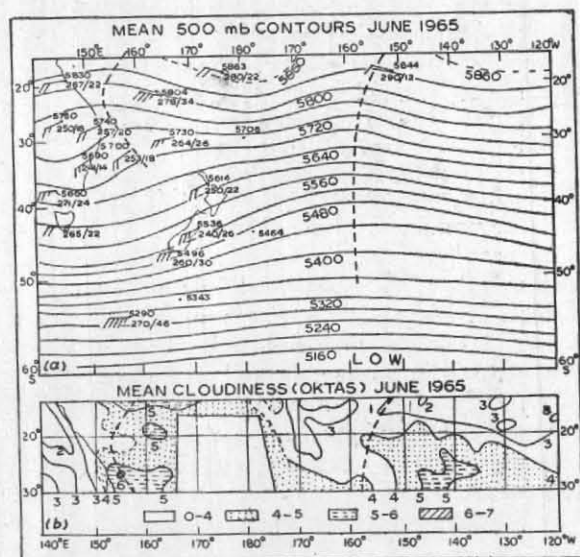 MEAN 500 mb CONTOURS JUNE 1965
150°E 160° 170° 180° 170° 160° 150° 140° 130° 120°W
20° 30° 40° 50° 60° S
20° 30° 40° 50° 60° S
5830
267/22
5863
280/22
5860
5844
290/12
5860
5804
278/34
5800
5760
250/18
5740
257/20
5730
264/26
5706
5720
5700
5690
241/14
257/18
5640
5660
271/24
5616
250/22
5560
265/22
5536
240/26
5464
5480
5496
260/30
5400
5343
5290
270/46
5320
5240
5160
(a)
LOW
MEAN CLOUDINESS (OKTAS) JUNE 1965
20° 30°
20° 30°
2 3 3 3 4 5 5 5 5 5
3 3 1 2 3 3 3
4 4 4 5 5 4
(b) 0-4 4-5 5-6 6-7
140°E 150° 160° 170° 180° 170° 160° 150° 140° 130° 120°W